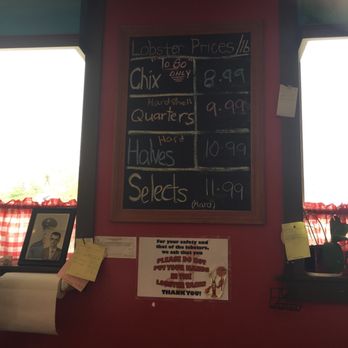 Lobster Prices/lb
Chix "To Go" ONLY 8.99
Hardshell
Quarters 9.99
Hard
Halves 10.99
Selects 11.99
(Hard)
For your safety and
that of the lobsters,
we ask that you
PLEASE DO NOT
PUT YOUR HANDS
IN THE
LOBSTER TANK!
THANK YOU!